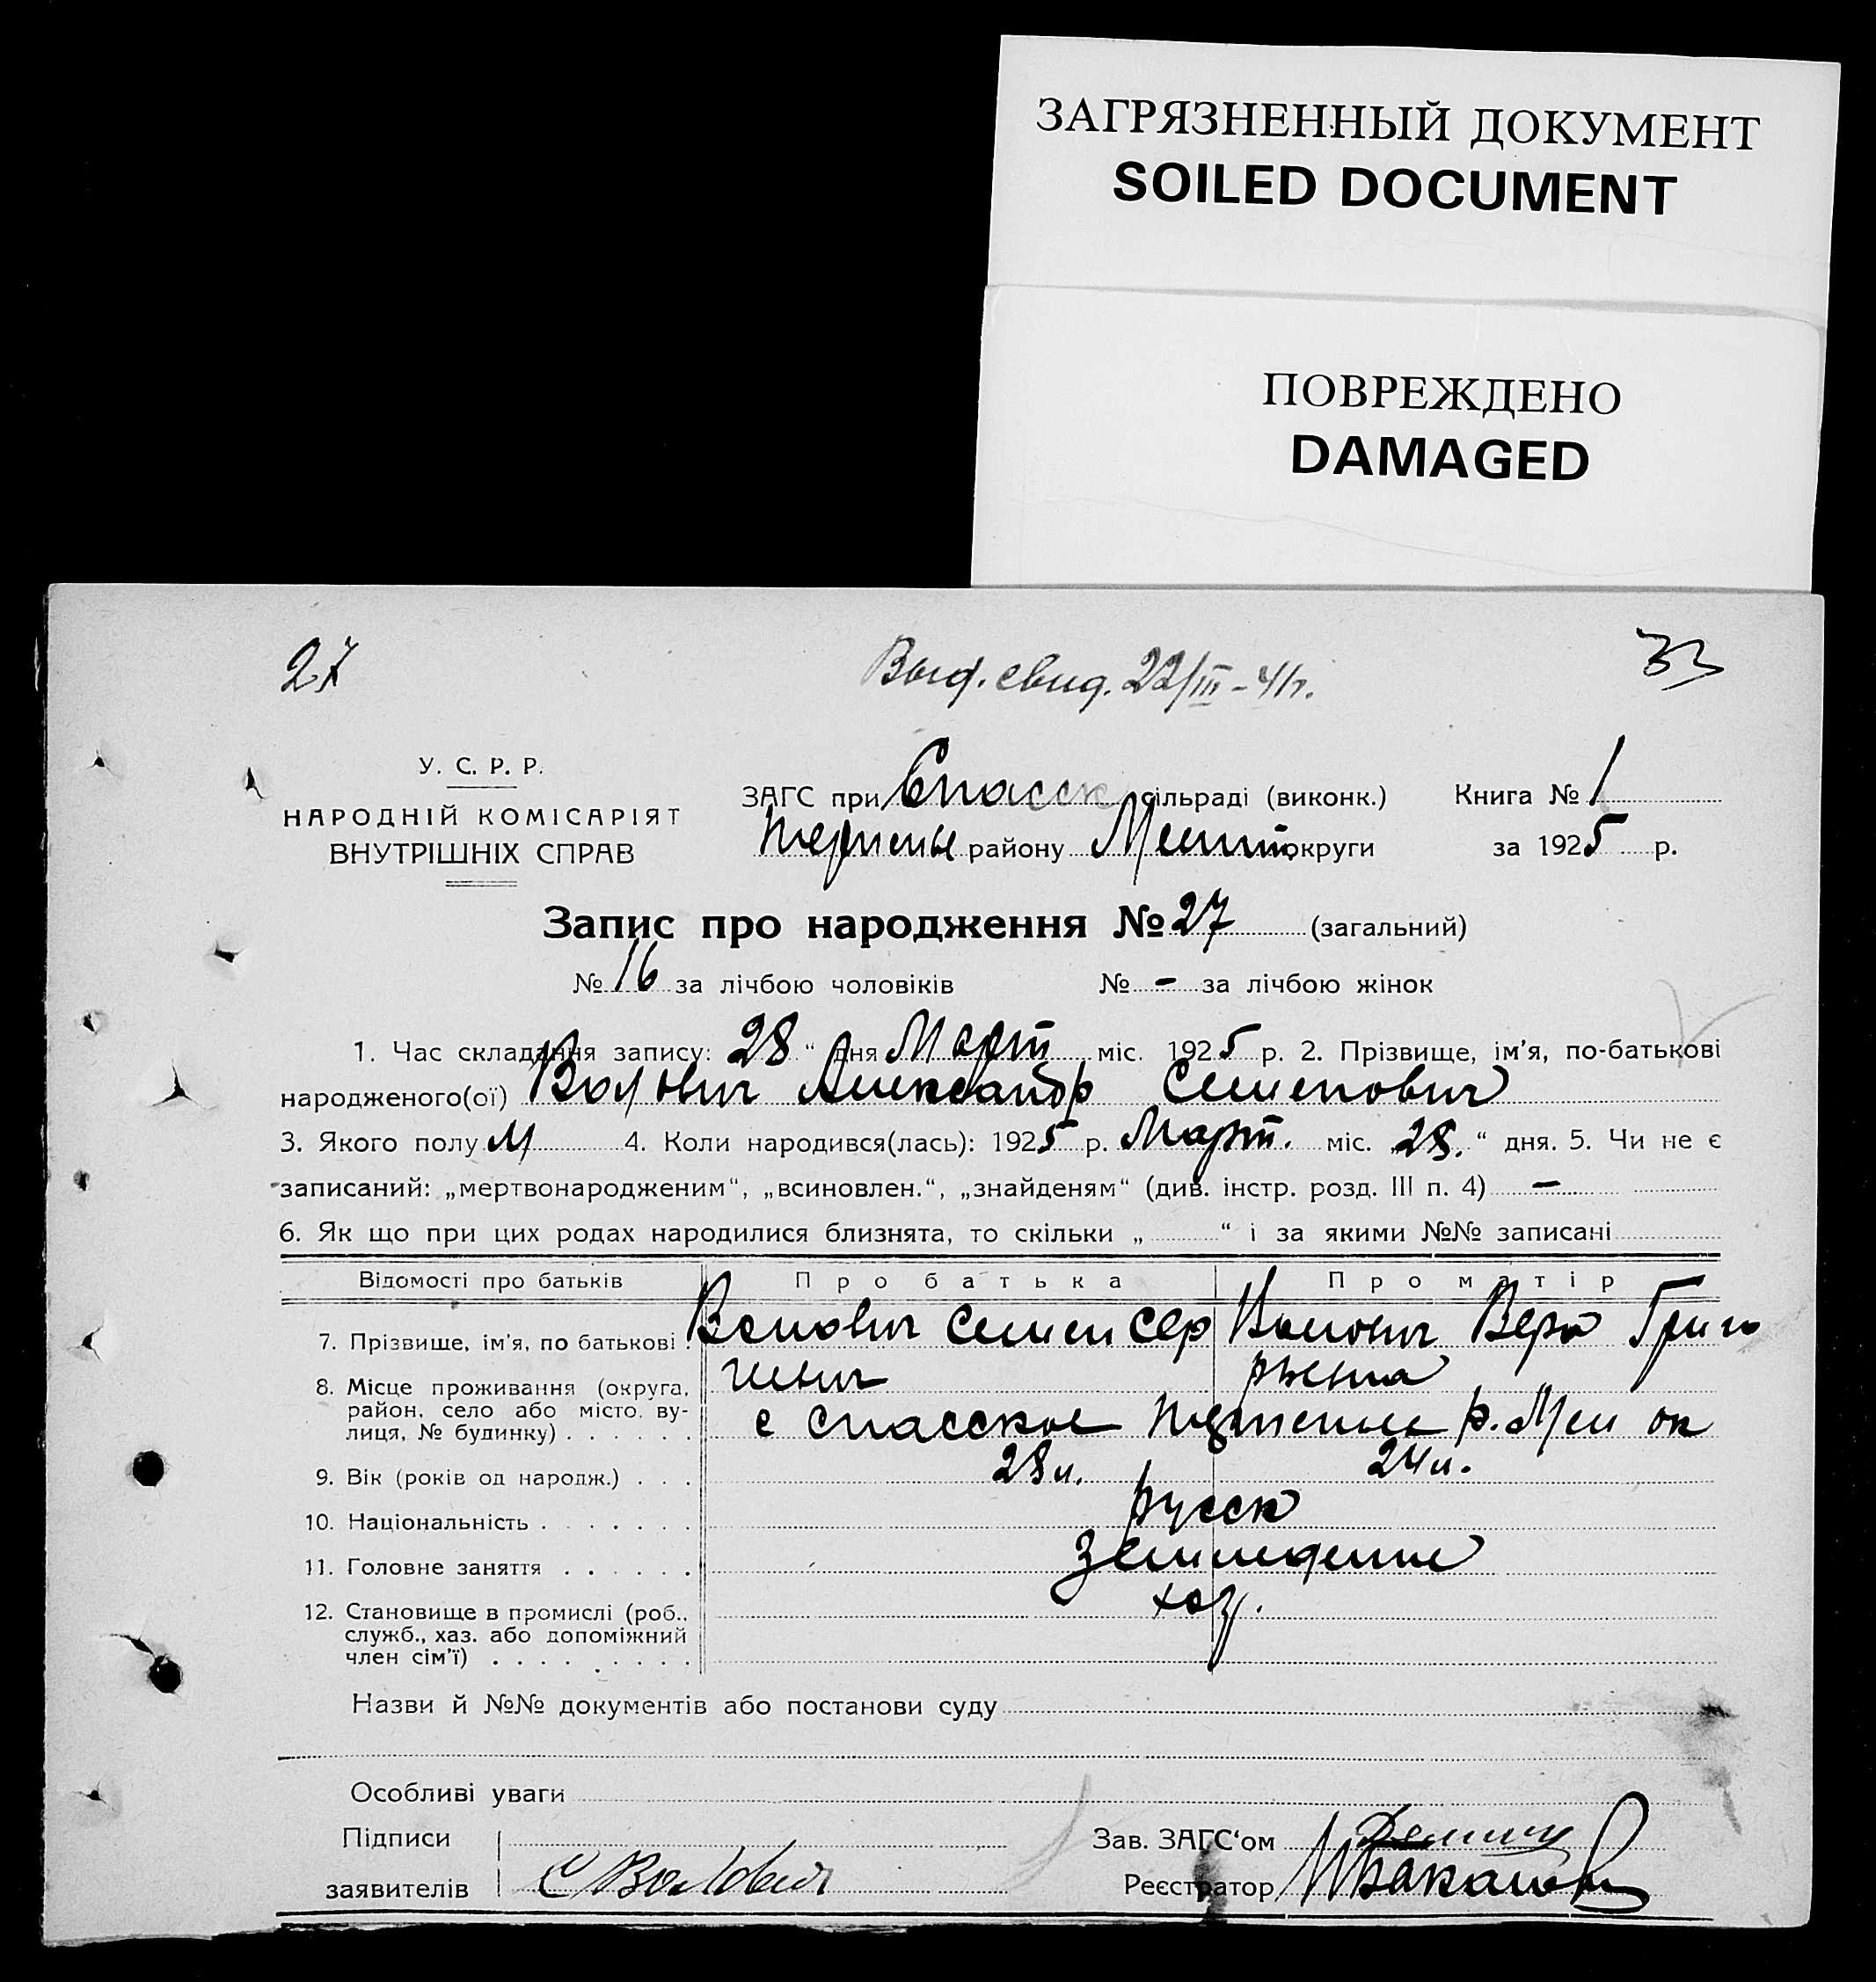 ЗАГРЯЗНЕННЫЙ ДОКУМЕНТ
SOILED DOCUMENT
ПОВРЕЖДЕНО
DAMAGED
27
Выд. свид. 22/III-41г.
33
У. С. Р. Р.
НАРОДНІЙ КОМІСАРІЯТ
ВНУТРІШНІХ СПРАВ
ЗАГС при Спасск сільраді (виконк.) Книга № 1
району Мелит. округи за 1925 р.
Запис про народження № 27 (загальний)
№ 16 за лічбою чоловіків № - за лічбою жінок
1. Час складання запису: 28 “ дня Март міс. 1925 р. 2. Прізвище, ім'я, по-батькові
народженого(ої) Александр Семенович
3. Якого полу М 4. Коли народився(лась): 1925 р. Март. міс. „28.“ дня. 5. Чи не є
записаний: „мертвонародженим“, „всиновлен.“, „знайденям“ (див. інстр. розд. III п. 4) —
6. Як що при цих родах народилися близнята, то скільки „ “ і за якими №№ записані
Відомості про батьків Про батька Про матір
7. Прізвище, ім'я, по батькові . Волович Семен Сер Волович Вера Григо
8. Місце проживання (округа, геевич рьевна
район, село або місто, ву-
лиця, № будинку) . . . . . . с Спасское р. Мел ок
9. Вік (років од народж.) . . . 28 л. 24 л.
10. Національність . . . . . . . русск
11. Головне заняття . . . . . . земледелие
12. Становище в промислі (роб., хоз.
служб., хаз. або допоміжний
член сім'ї) . . . . . . . . .
Назви й №№ документів або постанови суду
Особливі уваги
Підписи Зав. ЗАГС‘ом
заявителів С Волович Реєстратор